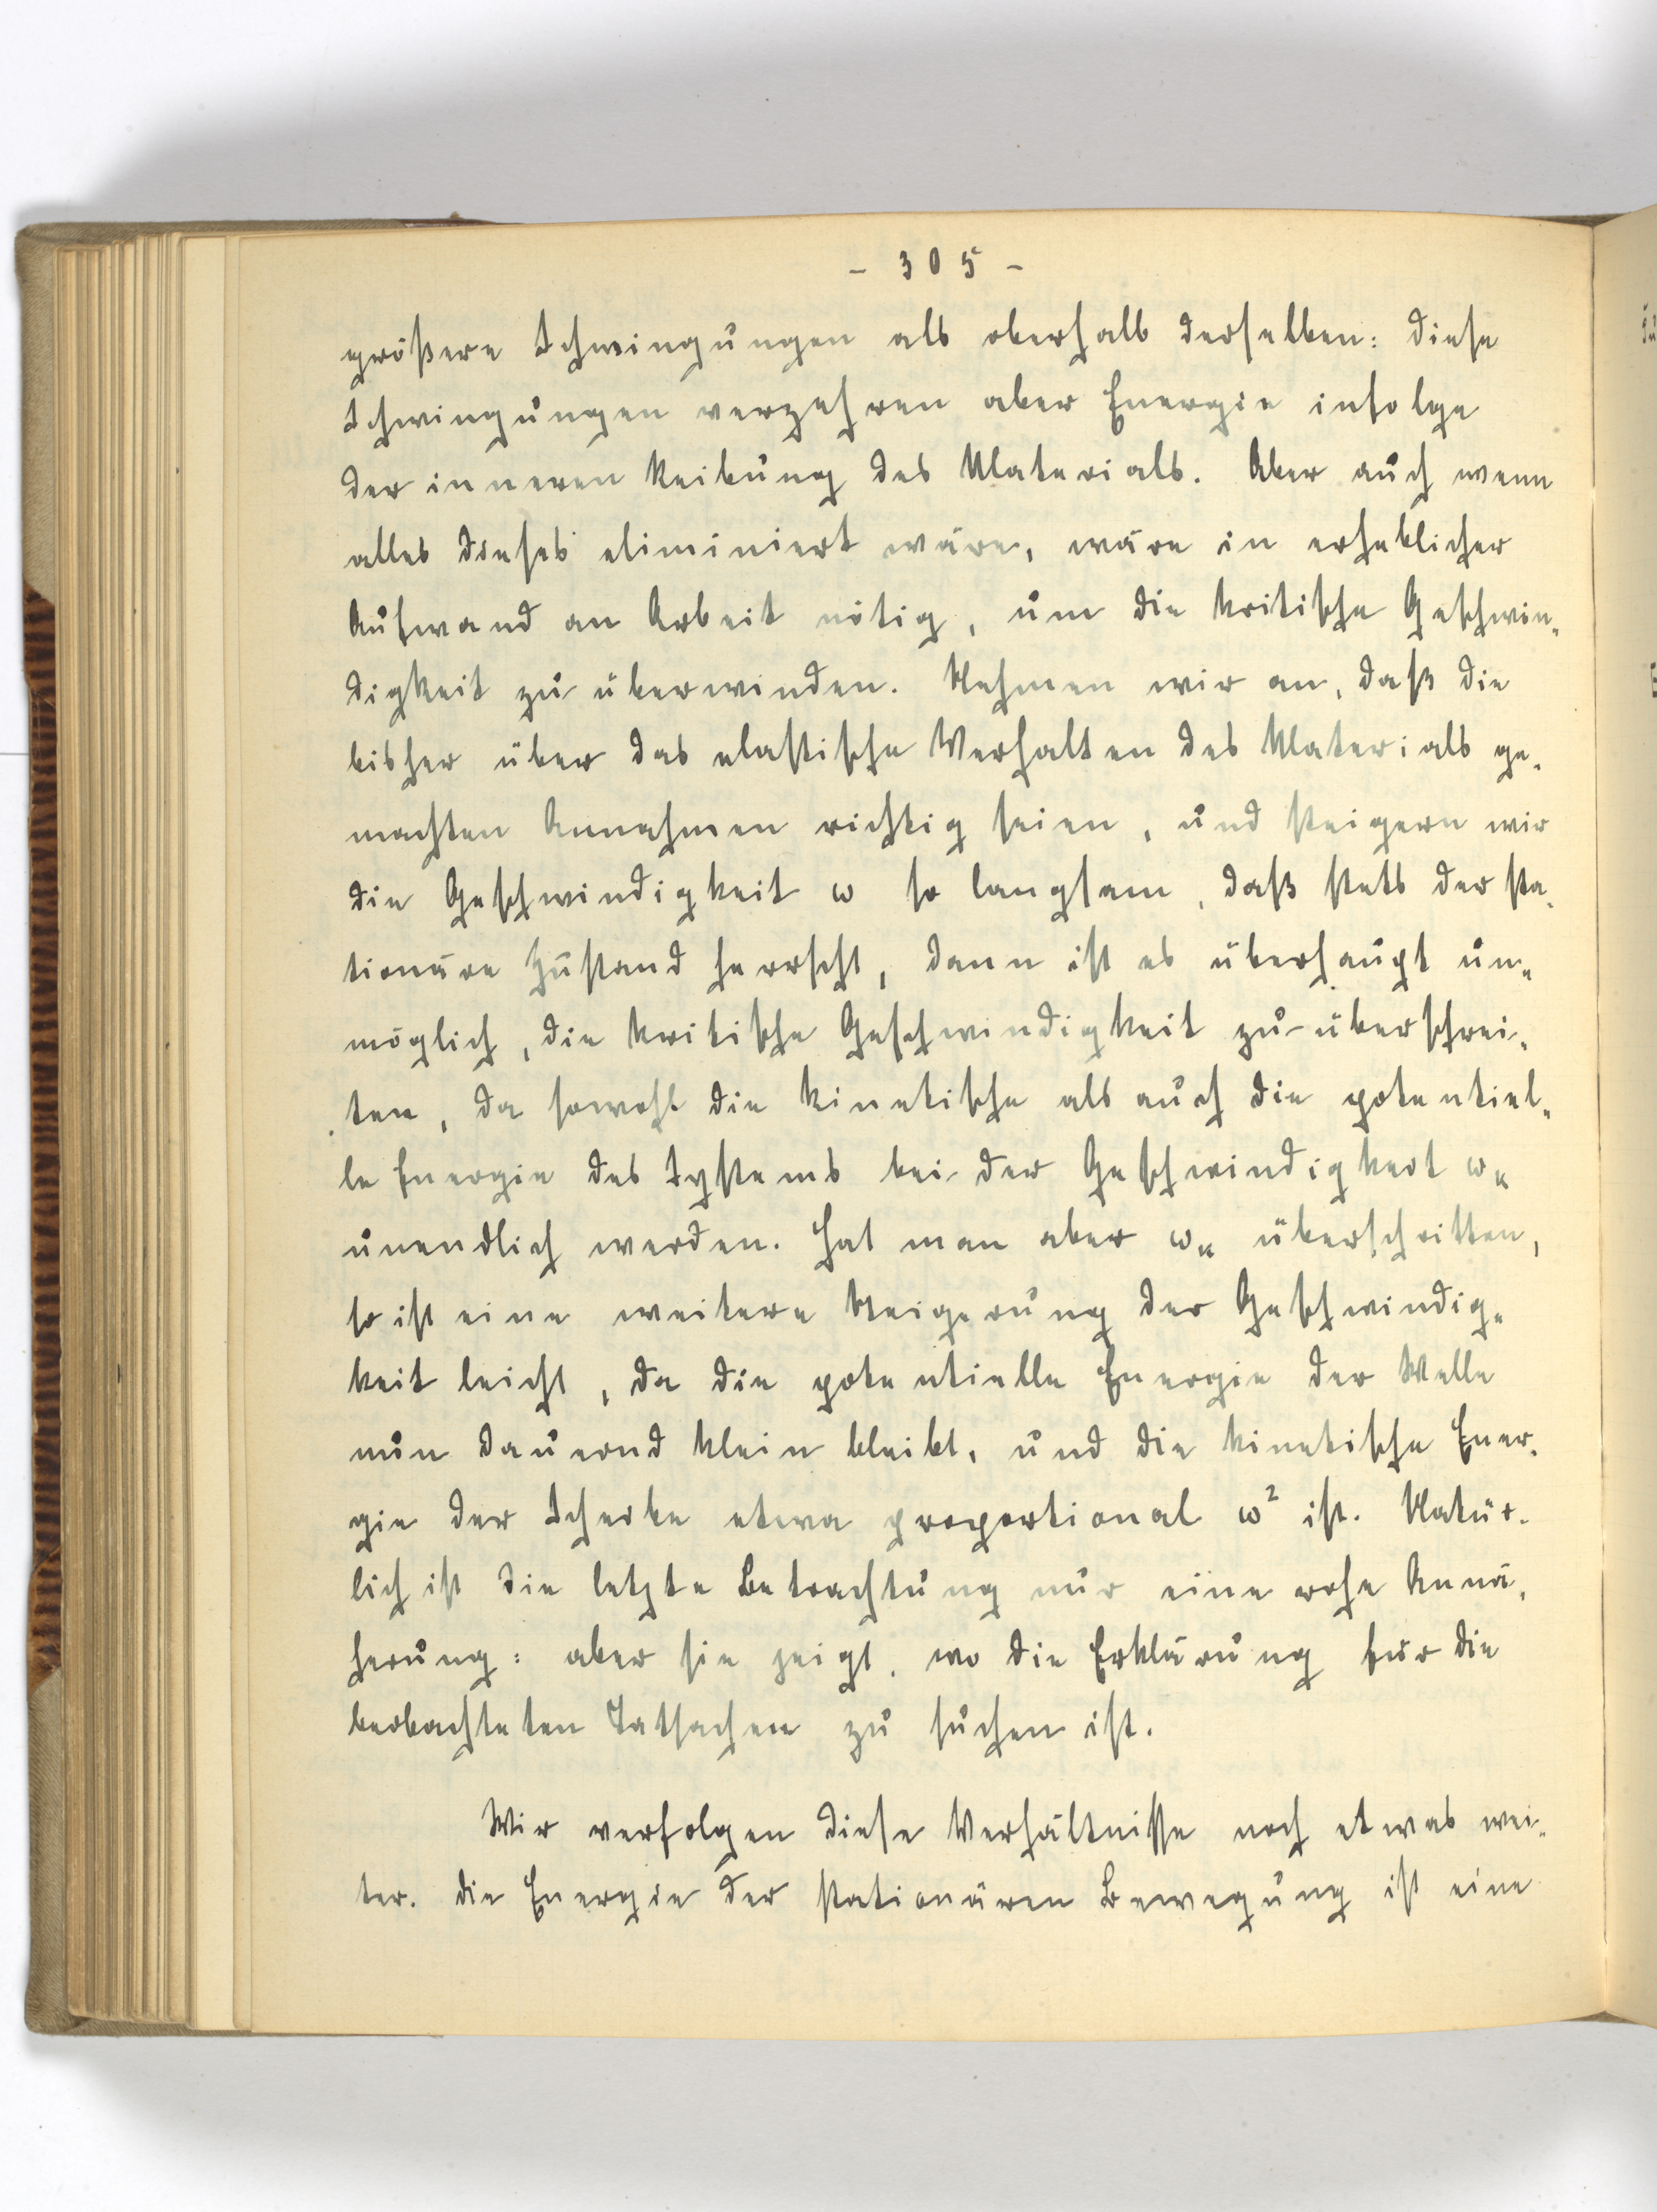 - 305 -
größere Schwingungen als oberhalb derselben: diese
Schwingungen verzehren aber Energie infolge
der inneren Reibung des Materials. Aber auch wenn
alles dieses eliminiert wäre, wäre in erheblicher
Aufwand an Arbeit nötig, um die kritische Geschwin-
digkeit zu überwinden. Nehmen wir an, daß die
bisher über das elastische Verhalten des Materials ge-
machten Annahmen richtig seien, und steigern wir
die Geschwindigkeit ω so langsam, daß stets der sta-
tionäre Zustand herrscht, dann ist es überhaupt un-
möglich, die kritische Geschwindigkeit zu überschrei-
ten, da sowohl die kinetische als auch die potentiel-
le Energie des Systems bei der Geschwindigkeit ωₖ
unendlich werden. Hat man aber ωₖ überschritten,
so ist eine weitere Steigerung der Geschwindig-
keit leicht, da die potentielle Energie der Welle
nun dauernd klein bleibt, und die kinetische Ener-
gie der Scheibe etwa proportional ω² ist. Natür-
lich ist die letzte Betrachtung nur eine rohe Annä-
herung: aber sie zeigt, wo die Erklärung für die
beobachteten Tatsachen zu suchen ist.
Wir verfolgen diese Verhältnisse noch etwas wei-
ter. die Energie der stationären Bewegung ist eine